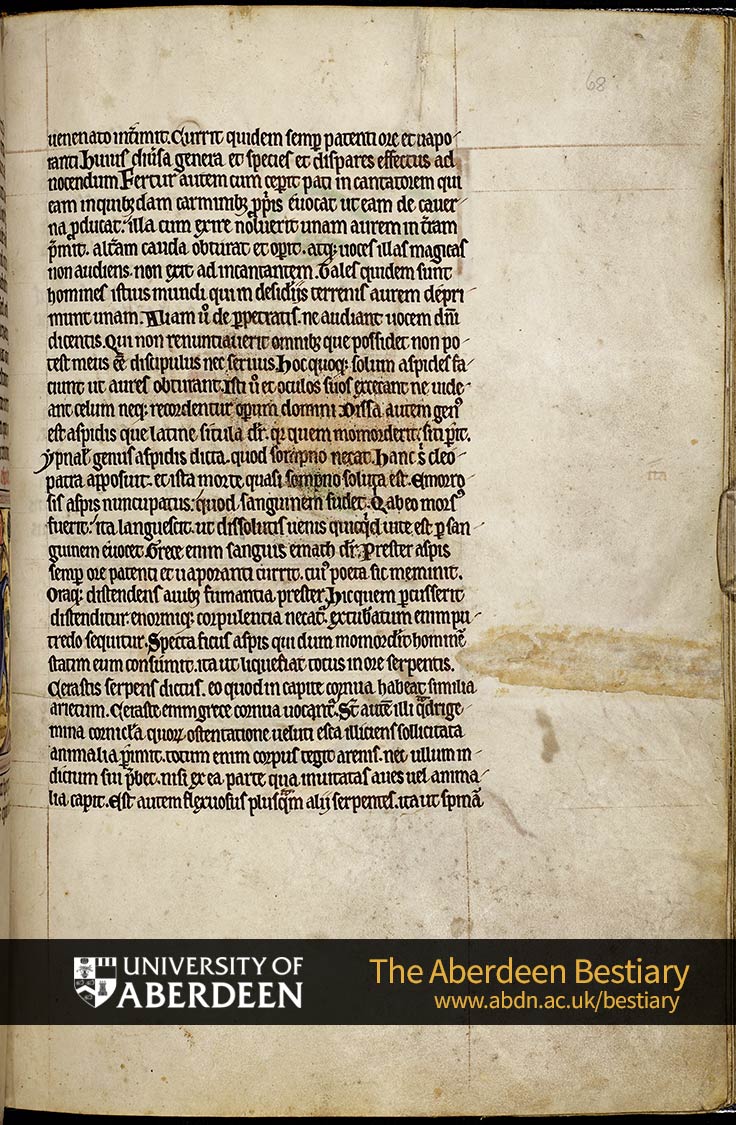 68
uenenato intimit. Currit quidem semp patenti ore et uapo
ranti. Huius diuisa genera et species et dispares effectus ad
nocendum Fertur autem cum ceperit pati in cantatorem qui
eam inquibzdam carminibz pprijs euocat ut eam de cauer
na pducat: illa cum exire noluerit unam aurem in tram
pmit. altam cauda obturat et opit. atqz uoces illas magicas
non audiens. non exit ad incantantem. Tales quidem sunt
homines istius mundi qui in desidijs terrenis aurem depri
munt unam. Aliam u de ppetratis. ne audiant uocem dni
dicentis. Qui non renuntiauerit omnibz que possidet non po
test meus ee discipulus nec seruus. Hoc quoqz solum aspides fa
ciunt ut aures obturant. isti u et oculos suos excecant ne uide
ant celum neqz recordentur opum domini Dissa autem gen
est aspidis que latine situla dr. qr quem momorderit: siti pit.
ypnal genus aspidis dicta. quod sompno necat. hanc s cleo
patra apposuit. et ista morte quasi sompno soluta est. Emorro
sis aspis nuncupatus: quod sanguinem sudet. Qab eo mors
fuerit: ita languescit. ut dissolutis uenis quicqd uite est p san
guinem euocet. Grece enim sanguis emath dr. Prester aspis
semp ore patenti et uaporanti currit. cui poeta sic meminit.
Oraqz distendens auidz fumantia prester. Hic quem pcusserit
distenditur. enormiqz corpulentia necat. extubatum enim pu
tredo sequitur. Specta ficus aspis qui dum momordit homine
statim eum consumit. ita ut liquefiat totus in ore serpentis.
Cerastis serpens dictus. eo quod in capite cornua habeat similia
arietum. Ceraste enim grece cornua uocant. St aute illi qdrige
mina cornicla quorum ostentatione ueluti esca illiciens sollicitata
animalia pimit. totum enim corpus tegit arenis. nec ullum in
dicium sui pbet. nisi ex ea parte qua inuitatas aues uel anima
lia capit. Est autem flexuosus plusqm alij serpentes. ita ut spina
ita
UNIVERSITY OF
ABERDEEN
The Aberdeen Bestiary
www.abdn.ac.uk/bestiary